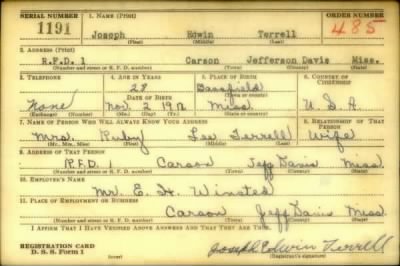 SERIAL NUMBER 1. NAME (Print) ORDER NUMBER
1191 Joseph Edwin Terrell 485
(First) (Middle) (Last)
2. ADDRESS (Print)
R.F.D. 1 Carson Jefferson Davis Miss.
(Number and street or R. F. D. number) (Town) (County) (State)
3. TELEPHONE 4. AGE IN YEARS 5. PLACE OF BIRTH 6. COUNTRY OF CITIZENSHIP
28 Bassfield
DATE OF BIRTH (Town or county)
None Nov. 2 1912 Miss U. S. A.
(Exchange) (Number) (Mo.) (Day) (Yr.) (State or country)
7. NAME OF PERSON WHO WILL ALWAYS KNOW YOUR ADDRESS 8. RELATIONSHIP OF THAT PERSON
Mrs. Ruby Lee Terrell Wife
(Mr., Mrs., Miss) (First) (Middle) (Last)
9. ADDRESS OF THAT PERSON
R.F.D. 1 Carson Jeff Davis Miss
(Number and street or R. F. D. number) (Town) (County) (State)
10. EMPLOYER'S NAME
Mr. E. H. Winsted
11. PLACE OF EMPLOYMENT OR BUSINESS
Carson Jeff Davis Miss
(Number and street or R. F. D. number) (Town) (County) (State)
I AFFIRM THAT I HAVE VERIFIED ABOVE ANSWERS AND THAT THEY ARE TRUE.
REGISTRATION CARD
D. S. S. Form 1 Joseph Edwin Terrell
(Registrant's signature)